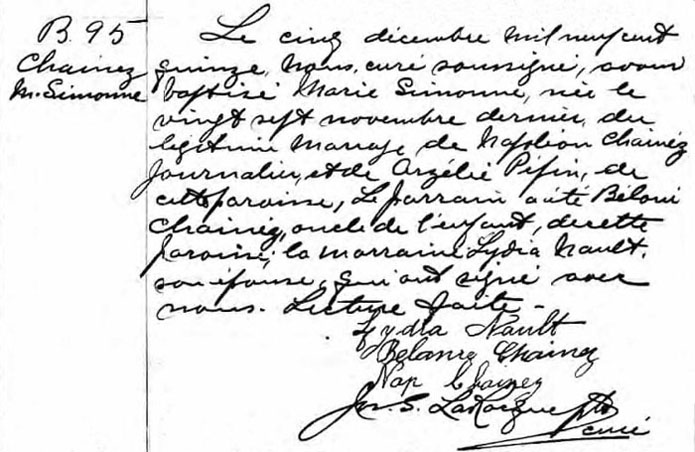 B. 95
Chainez
M. Simonne
Le cinq décembre mil neuf cent
quinze, nous, curé soussigné, avons
baptisé Marie Simonne, née le
vingt sept novembre dernier, du
légitime mariage de Napoléon Chainéz
journalier, et de Arzélie Pépin, de
cette paroisse, Le parrain a été Béloni
Chainéz, oncle de l'enfant, de cette
paroisse, la marraine Lydia Nault,
son épouse, qui ont signé avec
nous. Lecture faite -
Lydia Nault
Chainez
Nap Chainez
Jos. S. LaRocque ptre
curé